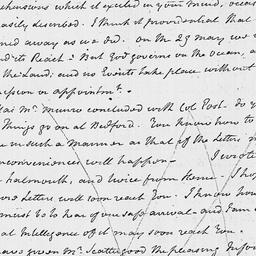 which it excited in your mind, occas
easily described. I think it providential that
ned away as we did. on the 23 May we w
Reach: But God governs on the ocean, a
the Land; and no Events take place without
or appointmt.
Mr. Munro concluded with Col Post. do y
Things go on at Bedford. You know how to
in such a Manner as that if the Letter m
inconveniences will happen— I wrote
Falmouth, and twice from Home— I hop
Letters will soon reach you. I know how
must be to hear of our safe arrival— and I am
Intelligence of it may soon reach you.
given Mr. Scattergood the pleasing Infor